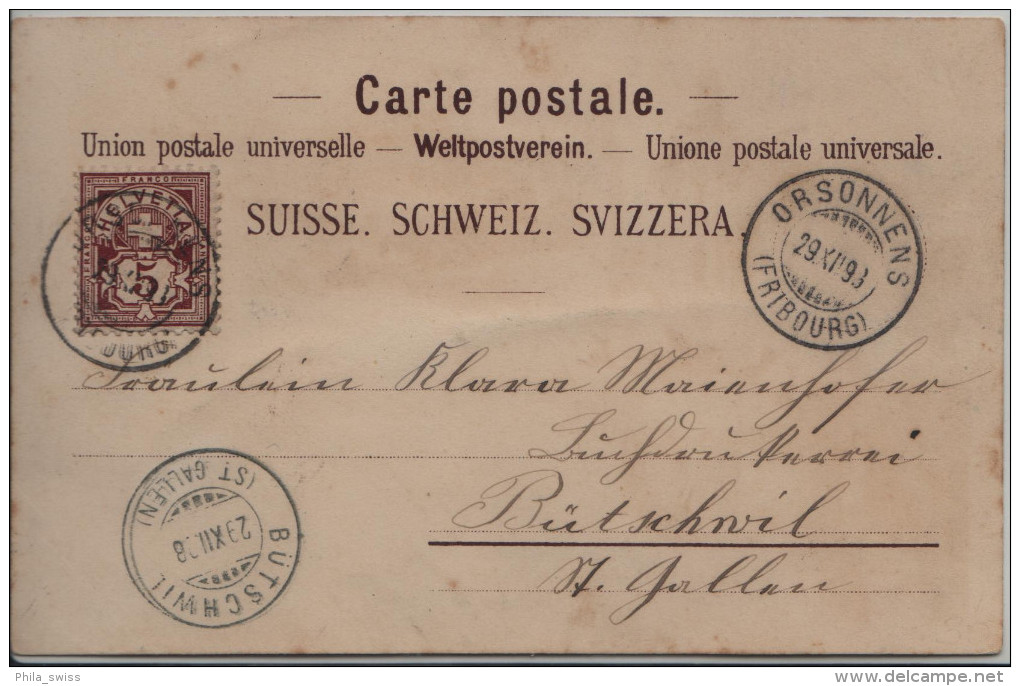 Carte postale.
Union postale universelle — Weltpostverein. — Unione postale universale.
SUISSE. SCHWEIZ. SVIZZERA.
FRANCO
HELVETIA
5
ORSONNENS
29.XII.98
(FRIBOURG)
Fräulein Klara Maienhofer
Buchdruckerei
Bütschwil
St. Gallen
BÜTSCHWIL
29.XII.98
(ST. GALLEN)
Phila_swiss
delcampe.net